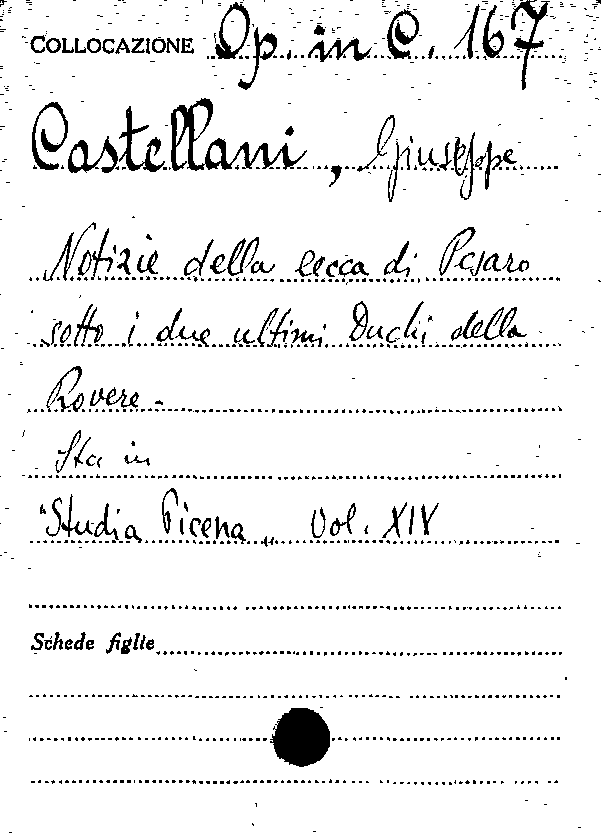 COLLOCAZIONE Op. in C. 167
Castellani, Giuseppe
Notizie della zecca di Pesaro
sotto i due ultimi Duchi della
Rovere -
Sta in
"Studia Picena„ Vol. XIV
Schede figlie